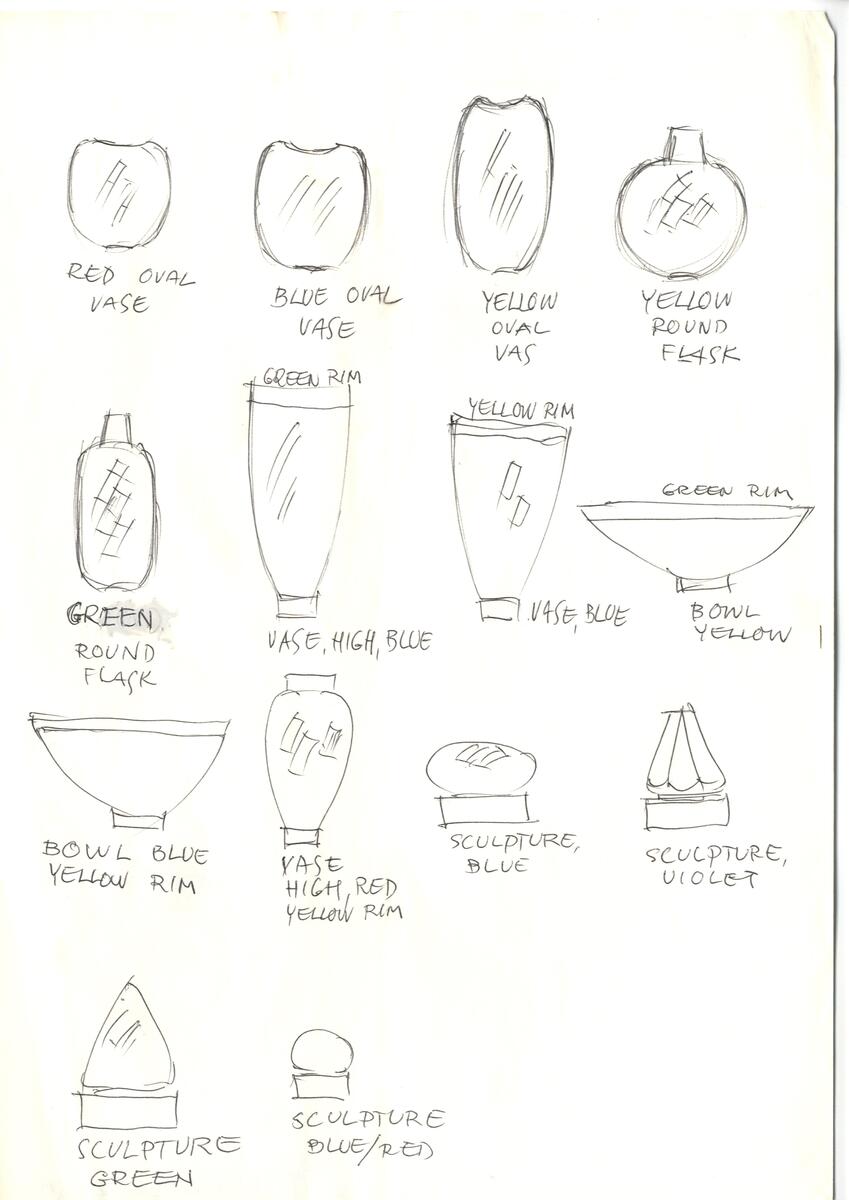 RED OVAL
VASE
BLUE OVAL
VASE
YELLOW
OVAL
VAS
YELLOW
ROUND
FLASK
GREEN
ROUND
FLASK
GREEN RIM
VASE, HIGH, BLUE
YELLOW RIM
VASE, BLUE
GREEN RIM
BOWL
YELLOW
BOWL BLUE
YELLOW RIM
VASE
HIGH, RED
YELLOW RIM
SCULPTURE,
BLUE
SCULPTURE,
VIOLET
SCULPTURE
GREEN
SCULPTURE
BLUE/RED